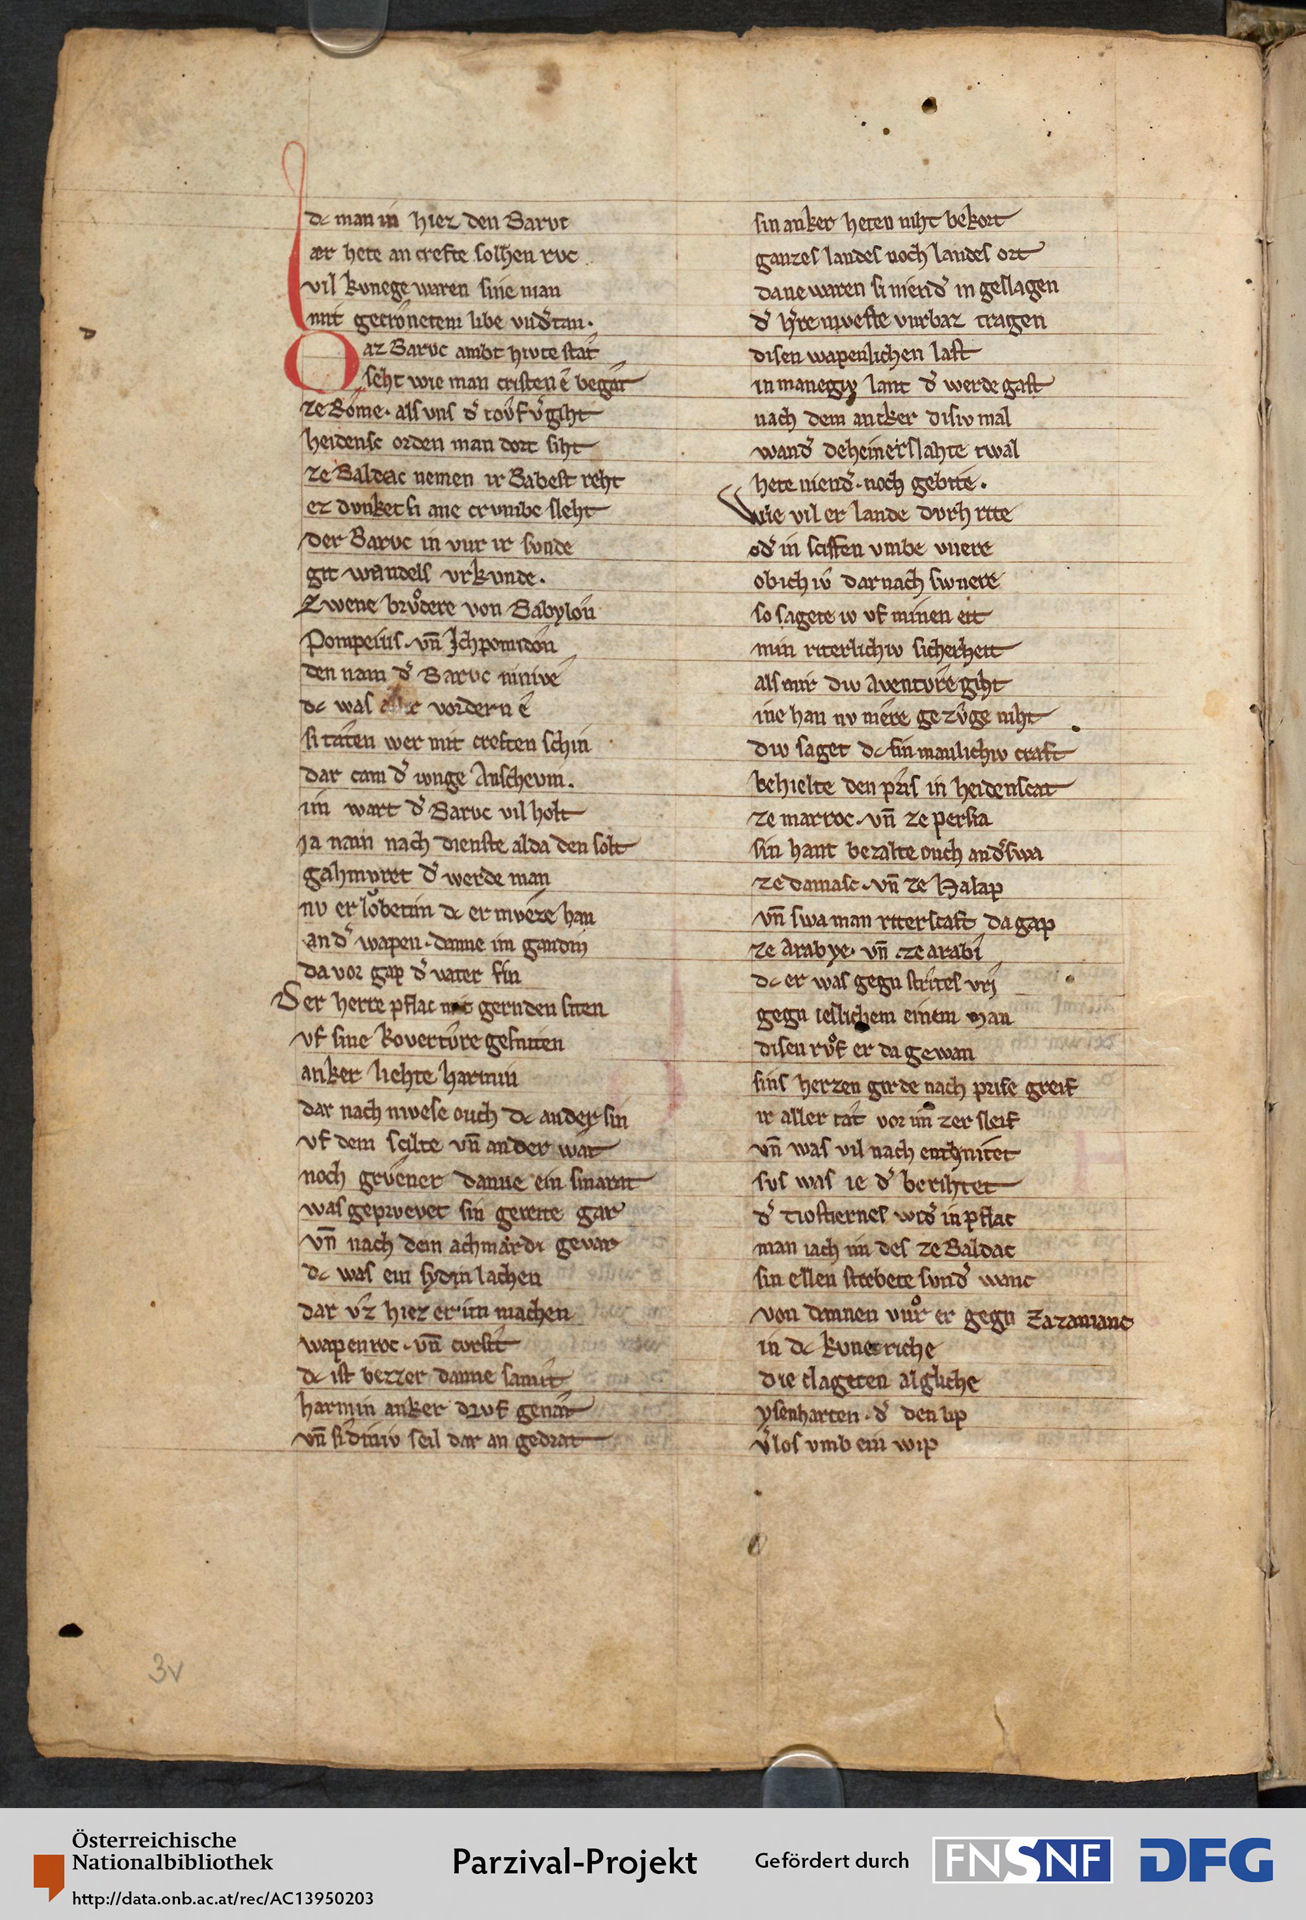 dc man in hiez den Baruc
ær hete an crefte solhen ruc
vil kunege waren sine man
mit gecrônetem libe vnd̾tan.
Daz Baruc ambt hivte stât
seht wie man cristen ê begât
ze Rôme. als vns d̾ tovf v̾giht
heidensc orden man dort siht
ze Baldac nemen ir Babest reht
ez dunket si ane crvmbe sleht
der Baruc in vur ir sunde
git wandels vrkunde.
Zwene bruͦdere von Babylôn
Pompeius. vn̄ Jchpomidôn
den nam d̾ Baruc ninivê
dc was vordern ê
si tâten wer mit creften schin
dar cam d̾ ivnge Anschevin.
im wart d̾ Baruc vil holt
ja nam nach dienste alda den solt
gahmuret d̾ werde man
nv erlobetim dc er mveze han
and̾ wapen. danne im gandin
da vor gap d̾ vater sin
Der herre pflac mit gernden siten
vf sine kovertûre gesniten
anker liehte harmin
dar nach mvese ouch dc ander sin
vf dem scilte vn̄ an der wât
noch grûener danne ein smarat
was geprvevet sin gereite gar
vn̄ nach dem achmârdi gevar
dc was ein sydin lachen
dar vz hiez er im machen
wapenroc. vn̄ cursît
dc ist bezzer danne samît
harmin anker druf genât
vn̄ sîdiniv seil dar an gedrat
sin anker heten niht bekort
ganzes landes noch landes ort
dane waren si niend̾ in geslagen
d̾ h̾re mveste vurbaz tragen
disen wapenlichen last
in manegiz lant d̾ werde gast
nach dem ancker disiv mal
wand̾ deheiner slahte twal
hete niend̾. noch gebite.
Wie vil er lande durh rite
od̾ in sciffen vmbe vuere
ob ich iv dar nach swuere
so sagete iv vf minen eit
min riterlichiv sicherheit
als mir div Aventûre giht
ine han nv mêre gezûge niht
div saget dc sin manlichiv craft
behielte den prîs in heidenscat
ze marroc. vn̄ ze persia
sin hant bezalte ouch and̾swa
ze damasc. vn̄ ze Halap
vn̄ swa man riterscaft da gap
ze Arabye. vn̄ ze arabî
dc er was gegn strîtes vrî
gegn ieslichem einem man
disen ruͦf er da gewan
sins herzen girde nach prise greif
ir aller tât vor im zer sleif
vn̄ was vil nach entnihtet
sus was ie d̾ berihtet
d̾ tiostiernes wid̾ in pflac
man iach im des ze Baldac
sin ellen strebete sund̾ wanc
von dannen vuͦr er gegn Zazamanc
in dc kunecriche
die clageten algliche
ysenharten. d̾ den lip
v̾los vmb ein wip
3v
Österreichische
Nationalbibliothek
http://data.onb.ac.at/rec/AC13950203
Parzival-Projekt
Gefördert durch
FNSNF
DFG